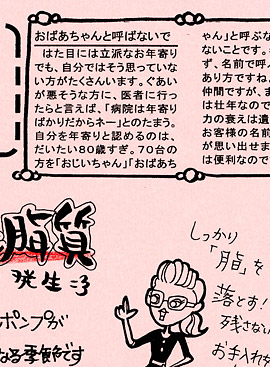 おばあちゃんと呼ばないで
はた目には立派なお年寄り
でも、自分ではそう思っていな
い方がたくさんいます。ぐあい
が悪そうな方に、医者に行っ
たらと言えば、「病院は年寄り
ばかりだからネー」とのたまう。
自分を年寄りと認めるのは、
だいたい80歳すぎ。70台の
方を「おじいちゃん」「おばあち
ゃん」と呼ぶな
ないことです。
ず、名前で呼ん
あり方ですね。
仲間ですが、ま
は壮年なので
力の衰えは遺
お客様の名前
が思い出せま
は便利なので
脂質
発生
ポンプが
なる季節です
しっかり
「脂」を
落とす!
残さない
お手入れ